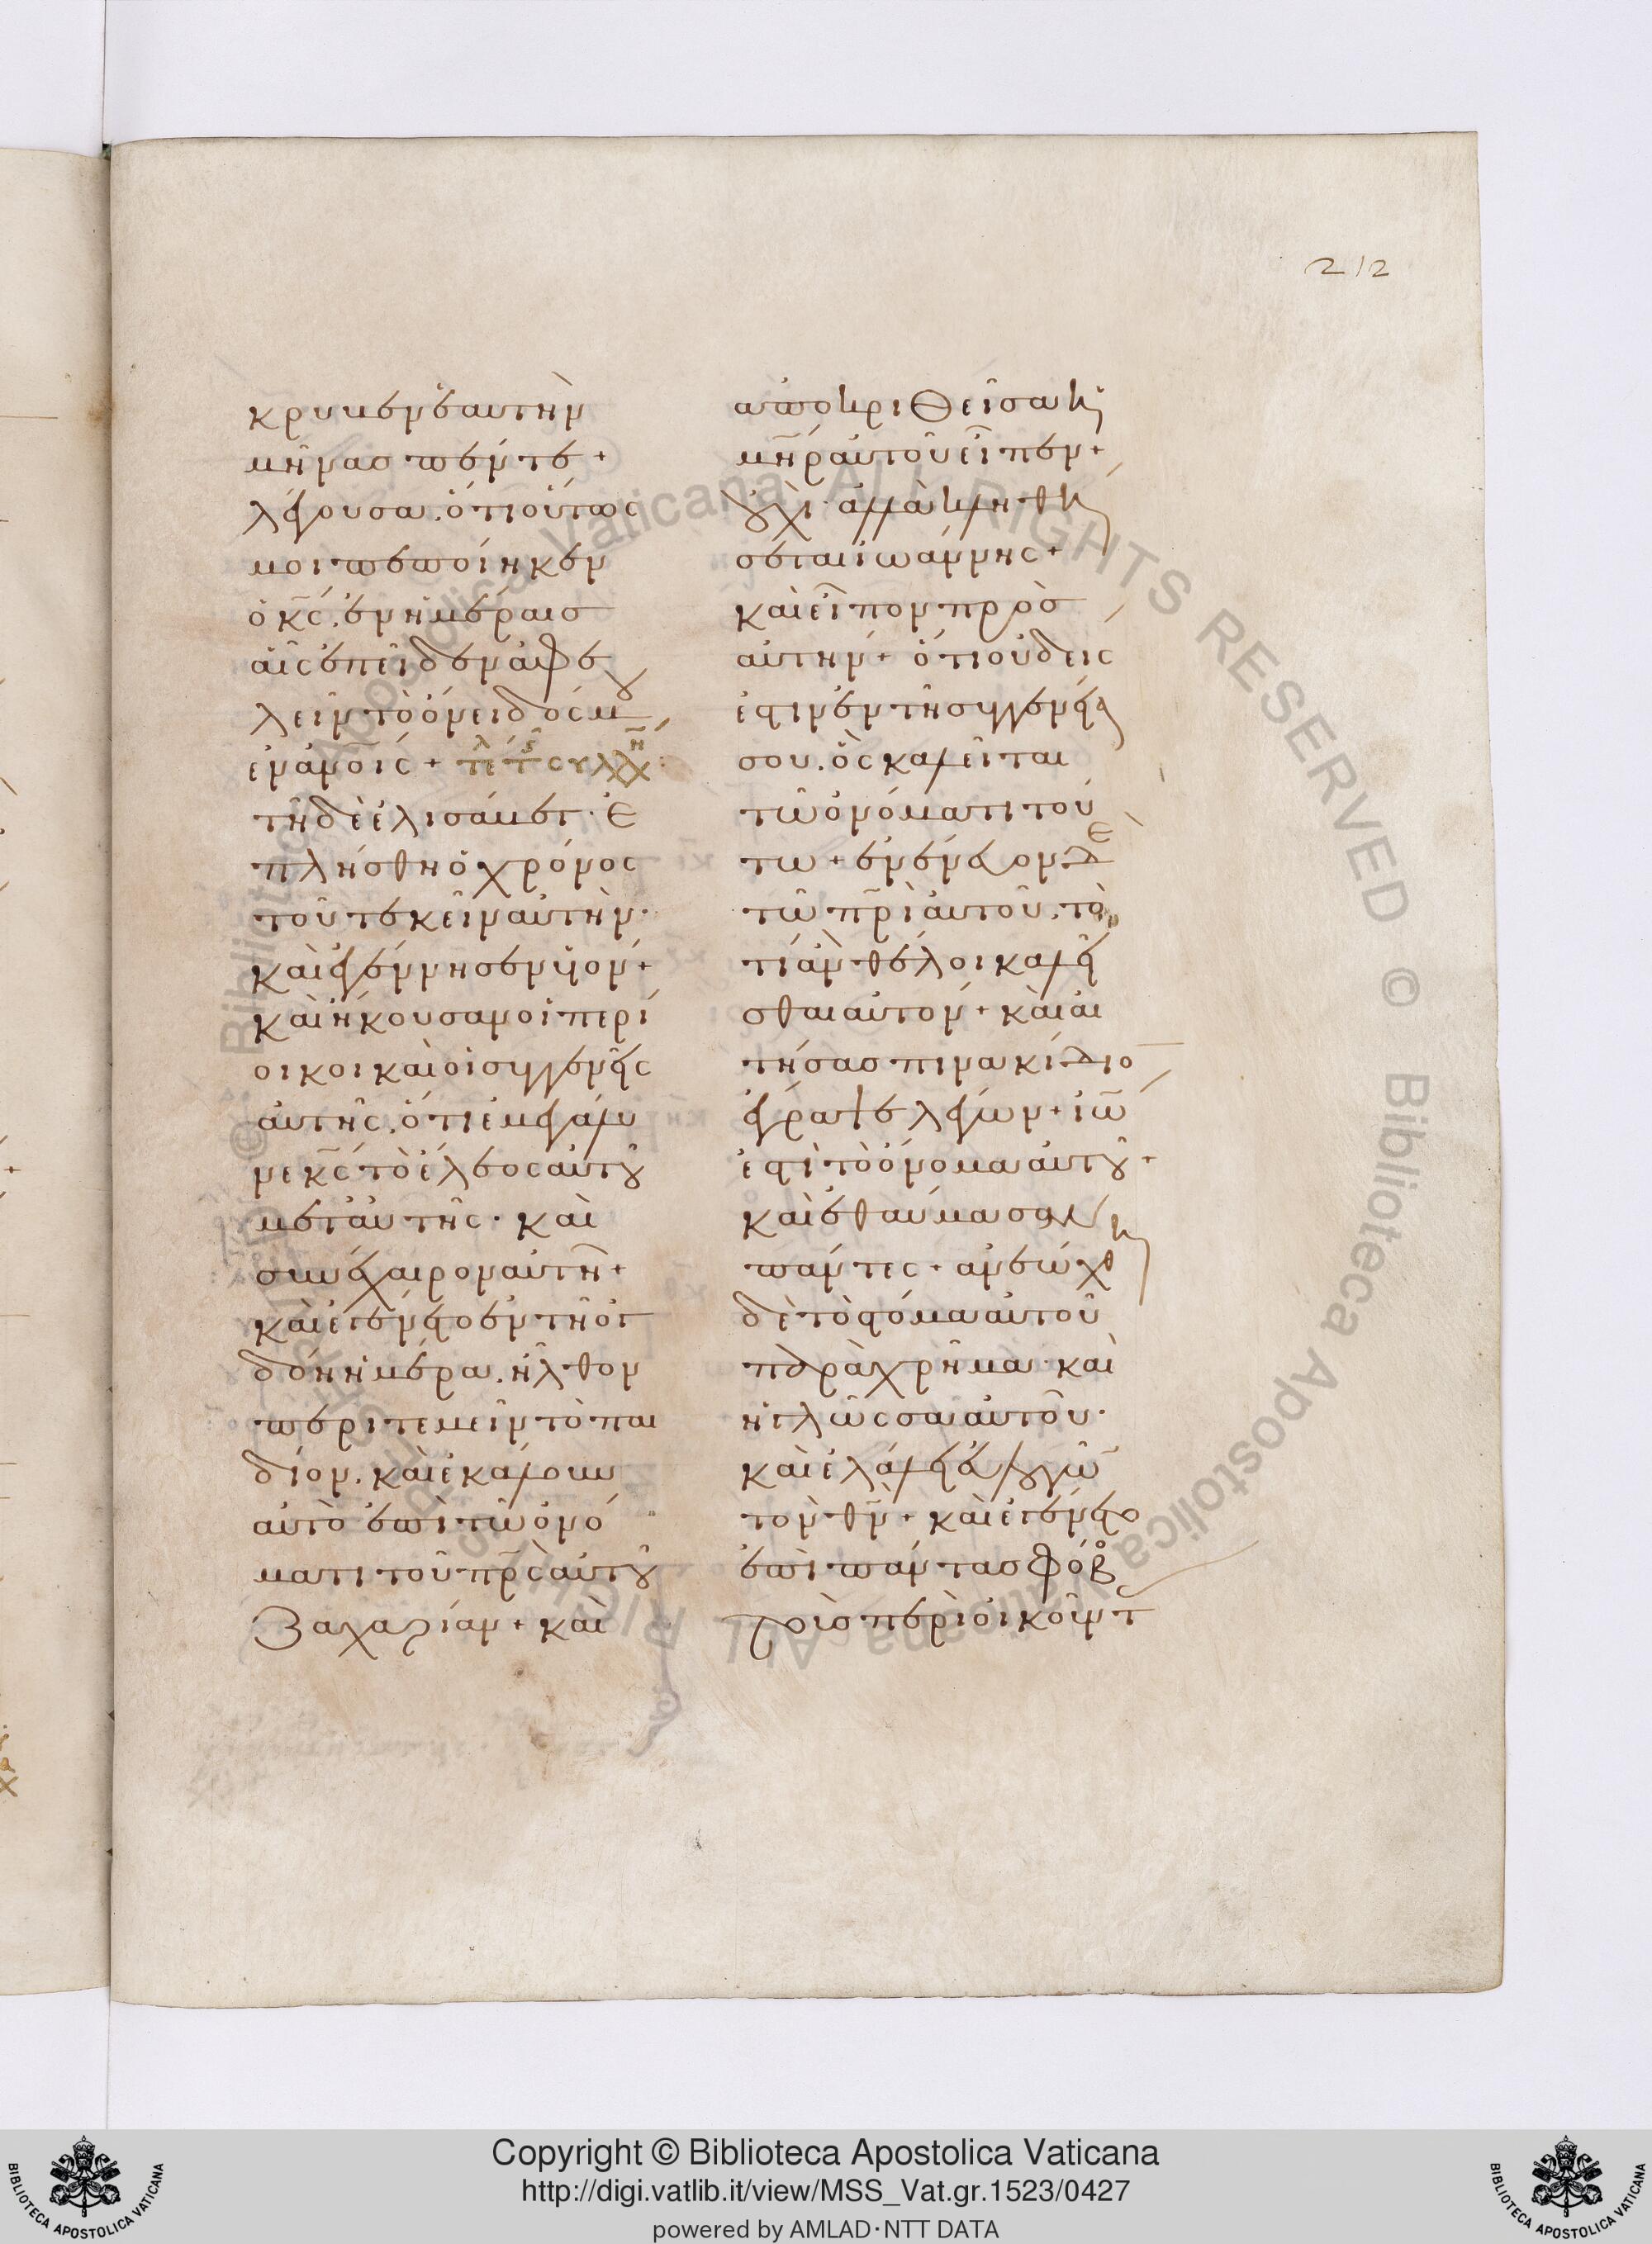 212
κρυπεν ἑαυτὴν
μῆνας πέντε +
λέγουσα. ὅτι οὕτως
μοι πεποίηκεν
ὁ κ̅ς̅. ἐν ἡμέραις
αἷς ἐπεῖδεν ἀφε
λεῖν τὸ ὄνειδός μου
ἐν ἀν̅οις +
τῆ δὲ ἐλισάβετ. ἐ
πλήσθη ὁ χρόνος
τοῦ τεκεῖν αὐτὴν.
καὶ ἐγέννησεν υἱόν +
καὶ ἤκουσαν οἱ περί
οικοι καὶ οἱ συγγενεῖς
αὐτῆς. ὅτι ἐμεγάλυ
νε κ̅ς̅ τὸ ἔλεος αὐτοῦ
μετ' αὐτῆς. καὶ
συνέχαιρον αὐτῆ +
καὶ ἐγένετο ἐν τῆ ὀγ
δόη ἡμέρα. ἦλθον
περιτεμεῖν τὸ παι
δίον. καὶ ἐκάλουν
αὐτὸ ἐπὶ τῶ ὀνό
ματι τοῦ π̅ρ̅ς̅ αὐτοῦ
Ζαχαρίαν + καὶ
ἀποκριθεῖσα ἡ
μ̅η̅ρ̅ αὐτοῦ εἶπεν +
οὐχὶ. ἀλλὰ κληθή
σεται ἰωάννης +
καὶ εἶπον πρὸς
αὐτήν + ὅτι οὐδεὶς
ἐστιν ἐν τῆ συγγενεία
σου. ὃς καλεῖται
τῶ ὀνόματι τού
τω + ἐνένευον δὲ
τῶ π̅ρ̅ι̅ αὐτοῦ. τὸ
τί ἂν θέλοι καλεῖ
σθαι αὐτόν + καὶ αἰ
τήσας πινακίδιον
ἔγραψε λέγων + ἰω̅
ἐστὶ τὸ ὄνομα αὐτοῦ +
καὶ ἐθαύμασαν
πάντες + ἀνεώχθη
δὲ τὸ στόμα αὐτοῦ
παραχρῆμα. καὶ
ἡ γλῶσσα αὐτοῦ.
καὶ ἐλάλει εὐλογῶν
τὸν θ̅ν̅ + καὶ ἐγένετο
ἐπὶ πάντας φόβος
τοὺς περιοικοῦντας
Copyright © Biblioteca Apostolica Vaticana
http://digi.vatlib.it/view/MSS_Vat.gr.1523/0427
powered by AMLAD·NTT DATA